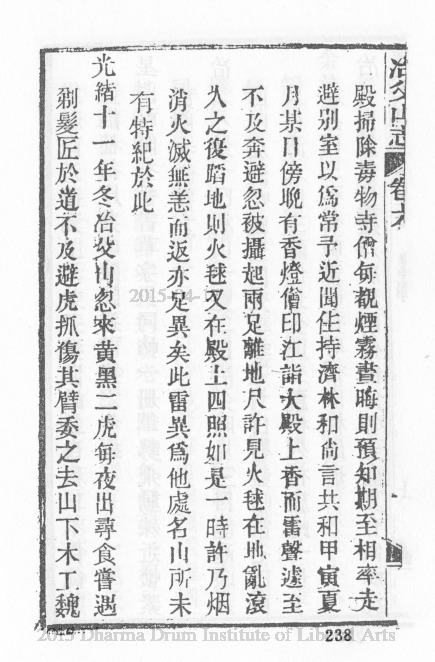 冶父山志 卷六
殿掃除毒物寺僧每覩煙霧晝晦則預知期至相率走
避別室以爲常予近聞住持濟林和尙言共和甲寅夏
月某日傍晚有香燈僧印江詣大殿上香而雷聲遽至
不及奔避忽被攝起兩足離地尺許見火毬在地亂滾
久之復蹈地則火毬又在殿上四照如是一時許乃烟
消火滅無恙而返亦足異矣此雷異爲他處名山所未
有特紀於此
光緖十一年冬冶父山忽來黄黑二虎每夜出尋食嘗遇
剃髮匠於道不及避虎抓傷其臂委之去山下木工魏
2015-04-1
238
2015 Dharma Drum Institute of Liberal Arts